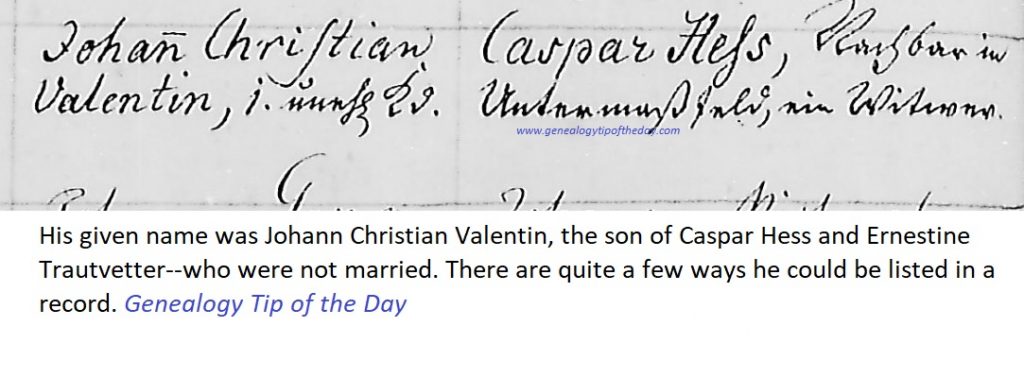 Johañ Christian
Valentin, 1. unehl Kd.
Caspar Hess, Nachbar in
Untermaßfeld, ein Witwer.
www.genealogytipoftheday.com
His given name was Johann Christian Valentin, the son of Caspar Hess and Ernestine
Trautvetter--who were not married. There are quite a few ways he could be listed in a
record. Genealogy Tip of the Day